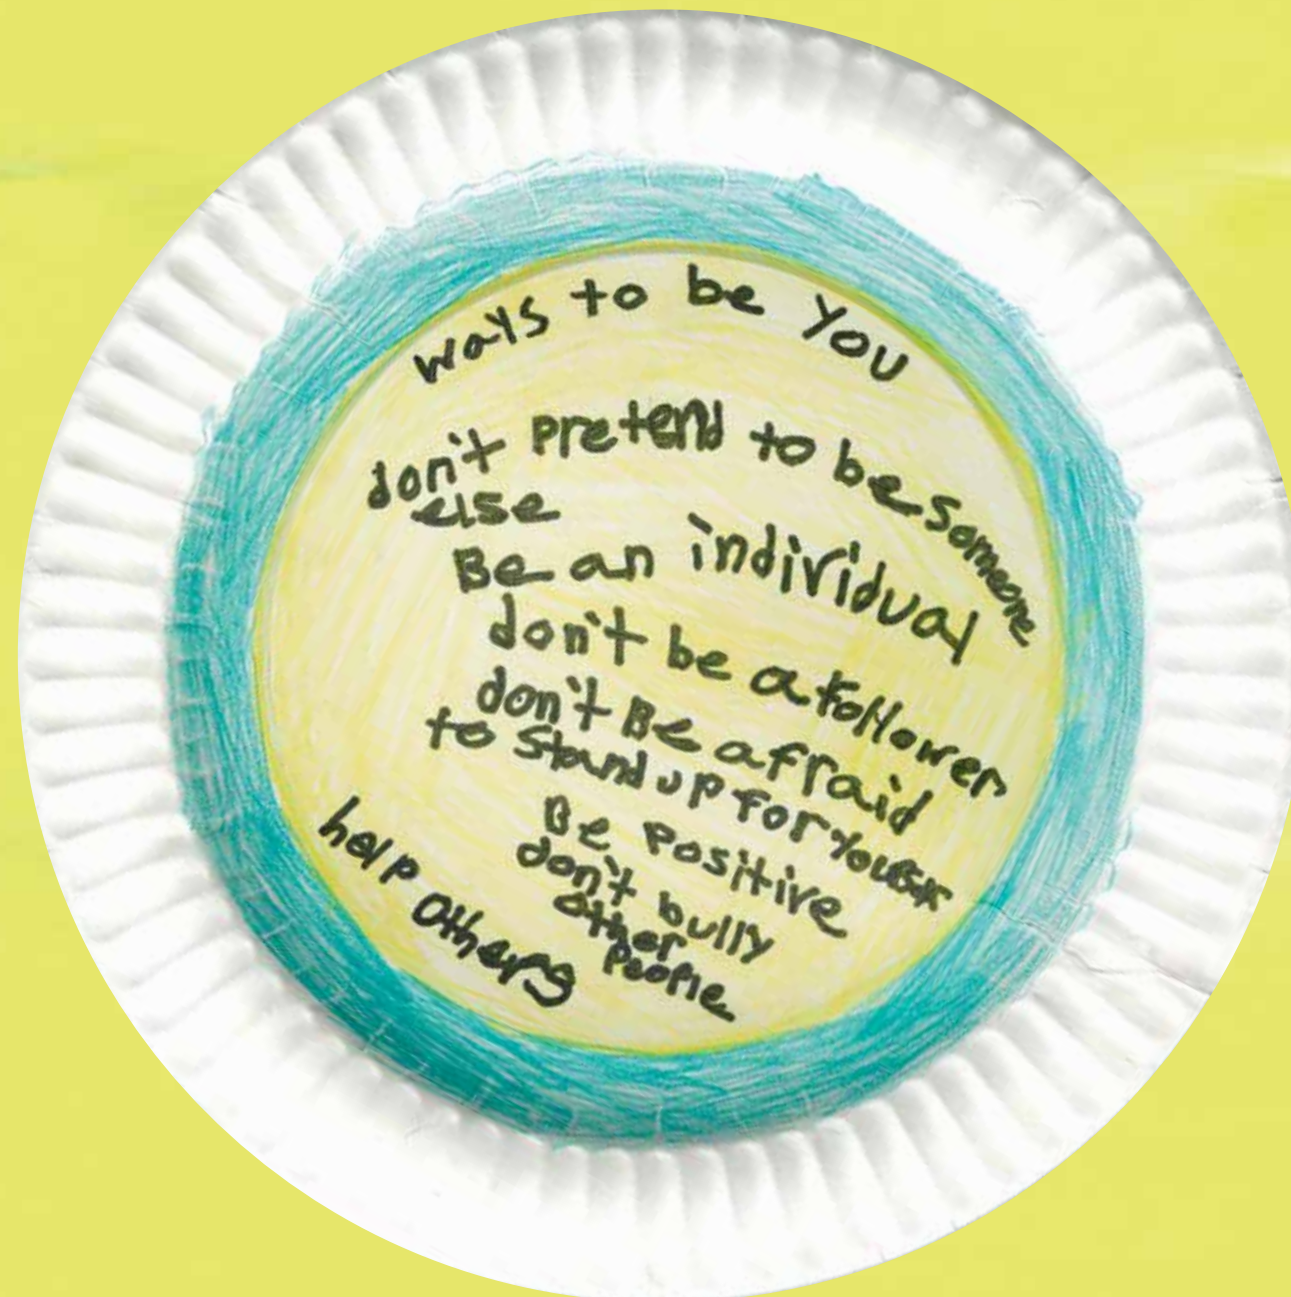 ways to be You
don't pretend to be someone
else
Be an individual
don't be a follower
don't Be afraid
to Stand up For
Be Positive
don't bully
other
People
help others